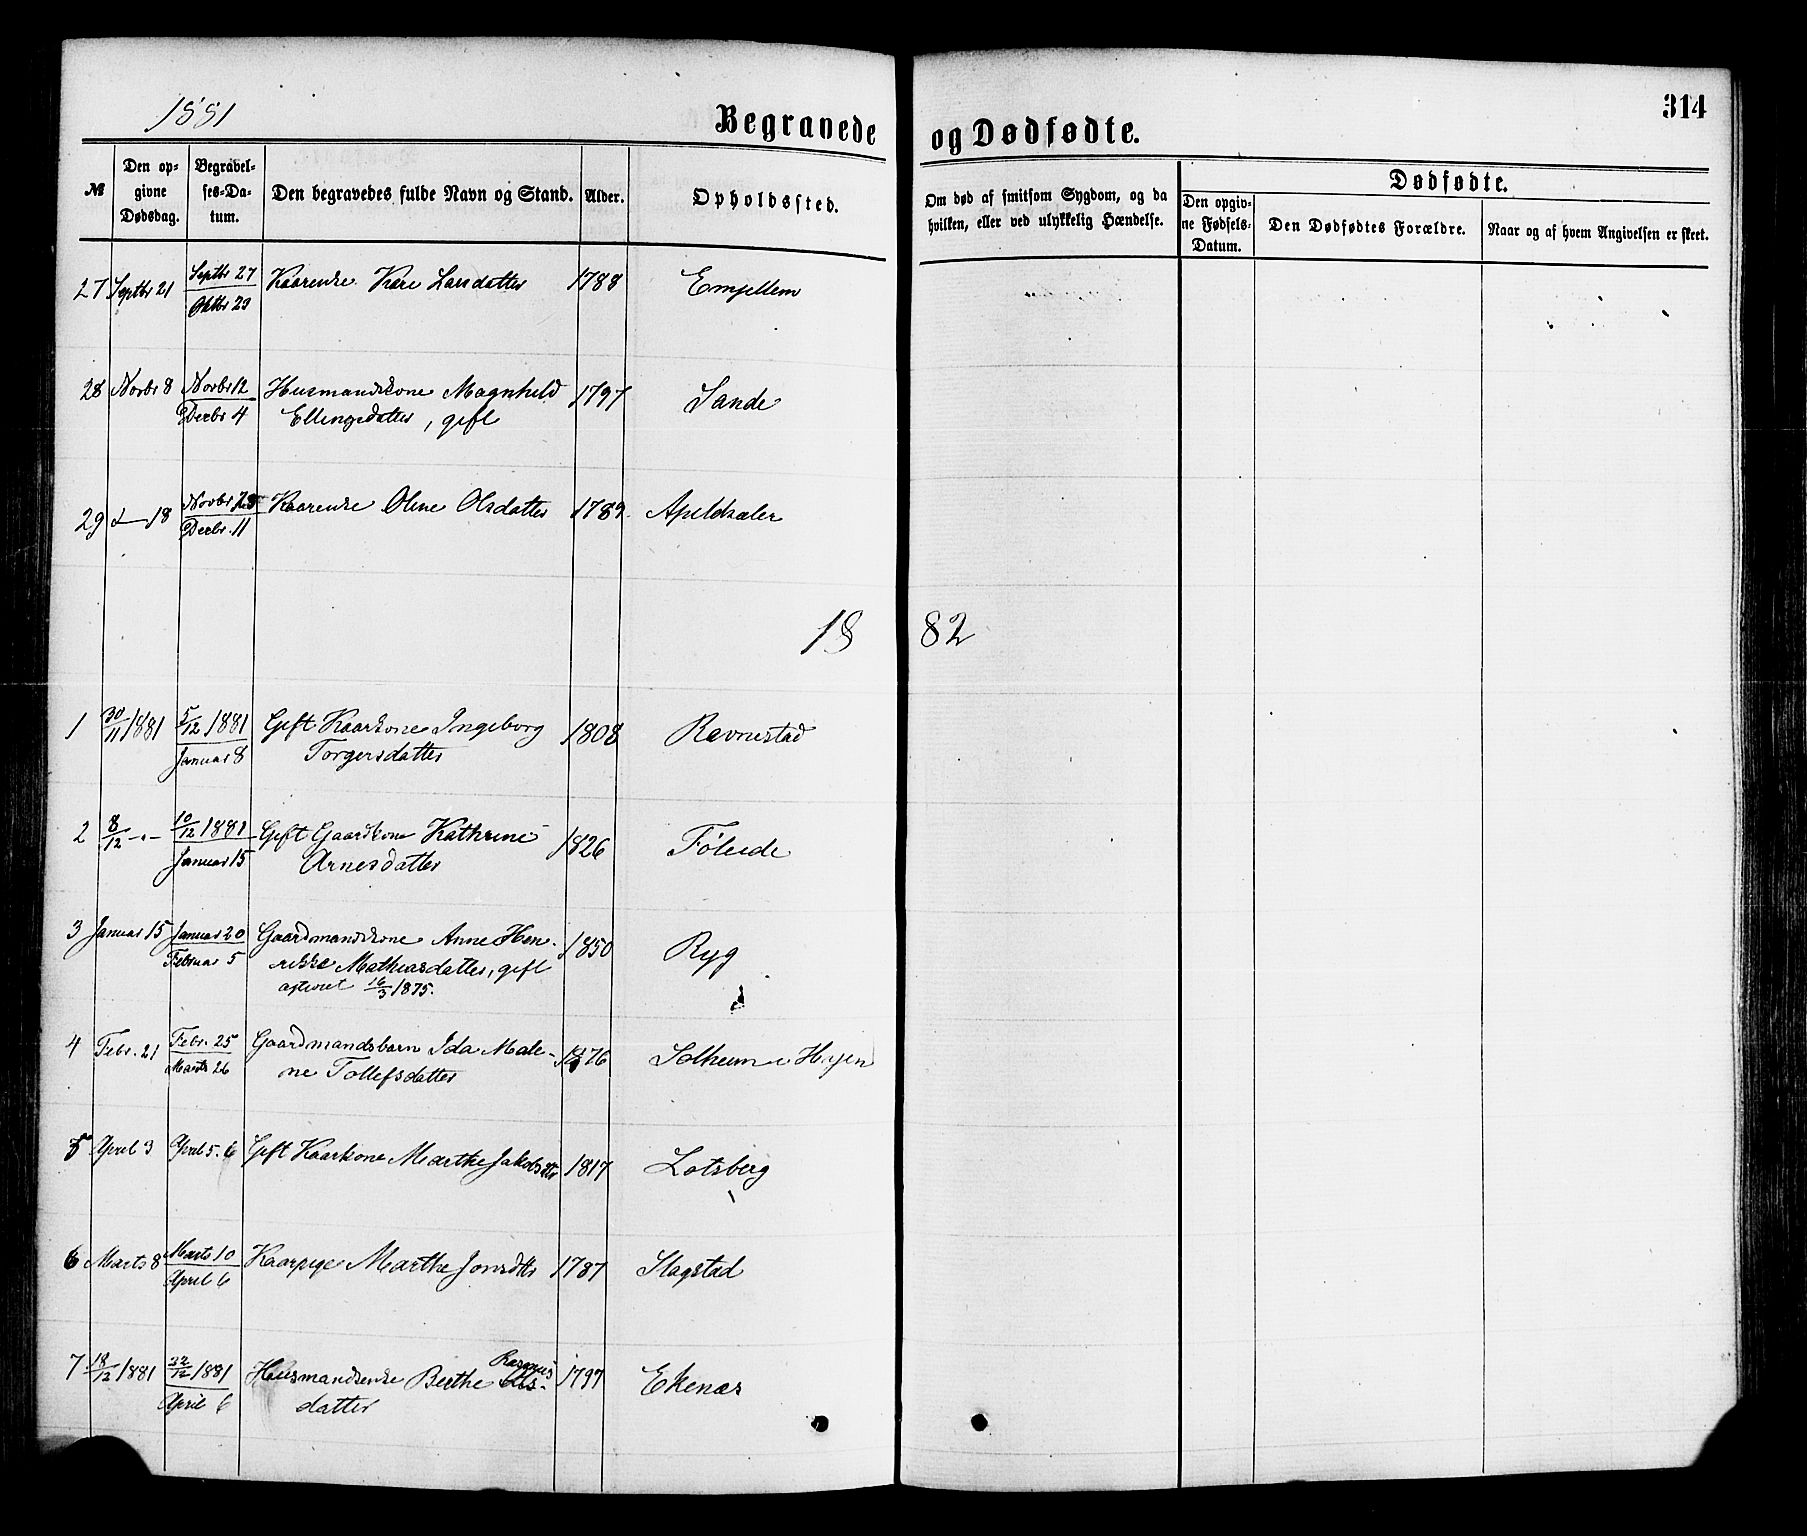 1881
Begravede og Dødfødte.
314
№
Den op-
givne
Dødsdag.
Begravel-
ses-Da-
tum.
Den begravedes fulde Navn og Stand.
Alder.
Opholdssted.
Om død af smitsom Sygdom, og da
hvilken, eller ved ulykkelig Hændelse.
Dødfødte.
Den opgiv-
ne Fødsels-
Datum.
Den Dødfødtes Forældre.
Naar og af hvem Angivelsen er skeet.
27 Septbr 21 Septbr 27 Kaarenke Kari Larsdatter 1788 Emjellem
Oktbr 29
28 Novbr 8 Novbr 12 Husmandskone Magnhild 1797 Sande
Decbr 4 Ellingsdatter, gift
29 d— 18 Novbr Kaarenke Oline Olsdatter 1789. Apeldsæter
Decbr. 11
1882
1 30/11 1881 5/12 1881 Gift Kaarkone Ingeborg 1808 Ravnestad
Januar 8 Torgersdatter
2 8/12 -"- 10/12 1881 Gift Gaardkone Kathrine 1826 Føleide
Januar 15 Arnesdatter
3 Januar 15 Januar 20 Gaardmandskone Anne Hen- 1850 Ryg
Februar 5 rikke Mathiasdatter, gift
16/3 1875.
4 Febr. 21 Febr. 25 Gaardmandsbarn Ida Male- 1876 Solheim i Hyen
Marts 26 ne Tollefsdatter
5 April 3 April 5. 6 Gift Kaarkone Marthe Jakobsdtr 1817 Lotsberg
6 Marts 8 Marts 10 Kaarpige Marthe Jonsdtr 1787 Slagstad
April 6
7 18/12 1881 22/12 1881 Husmandsenke Berthe Rasmus- 1797 Ekenæs
April 6 datter